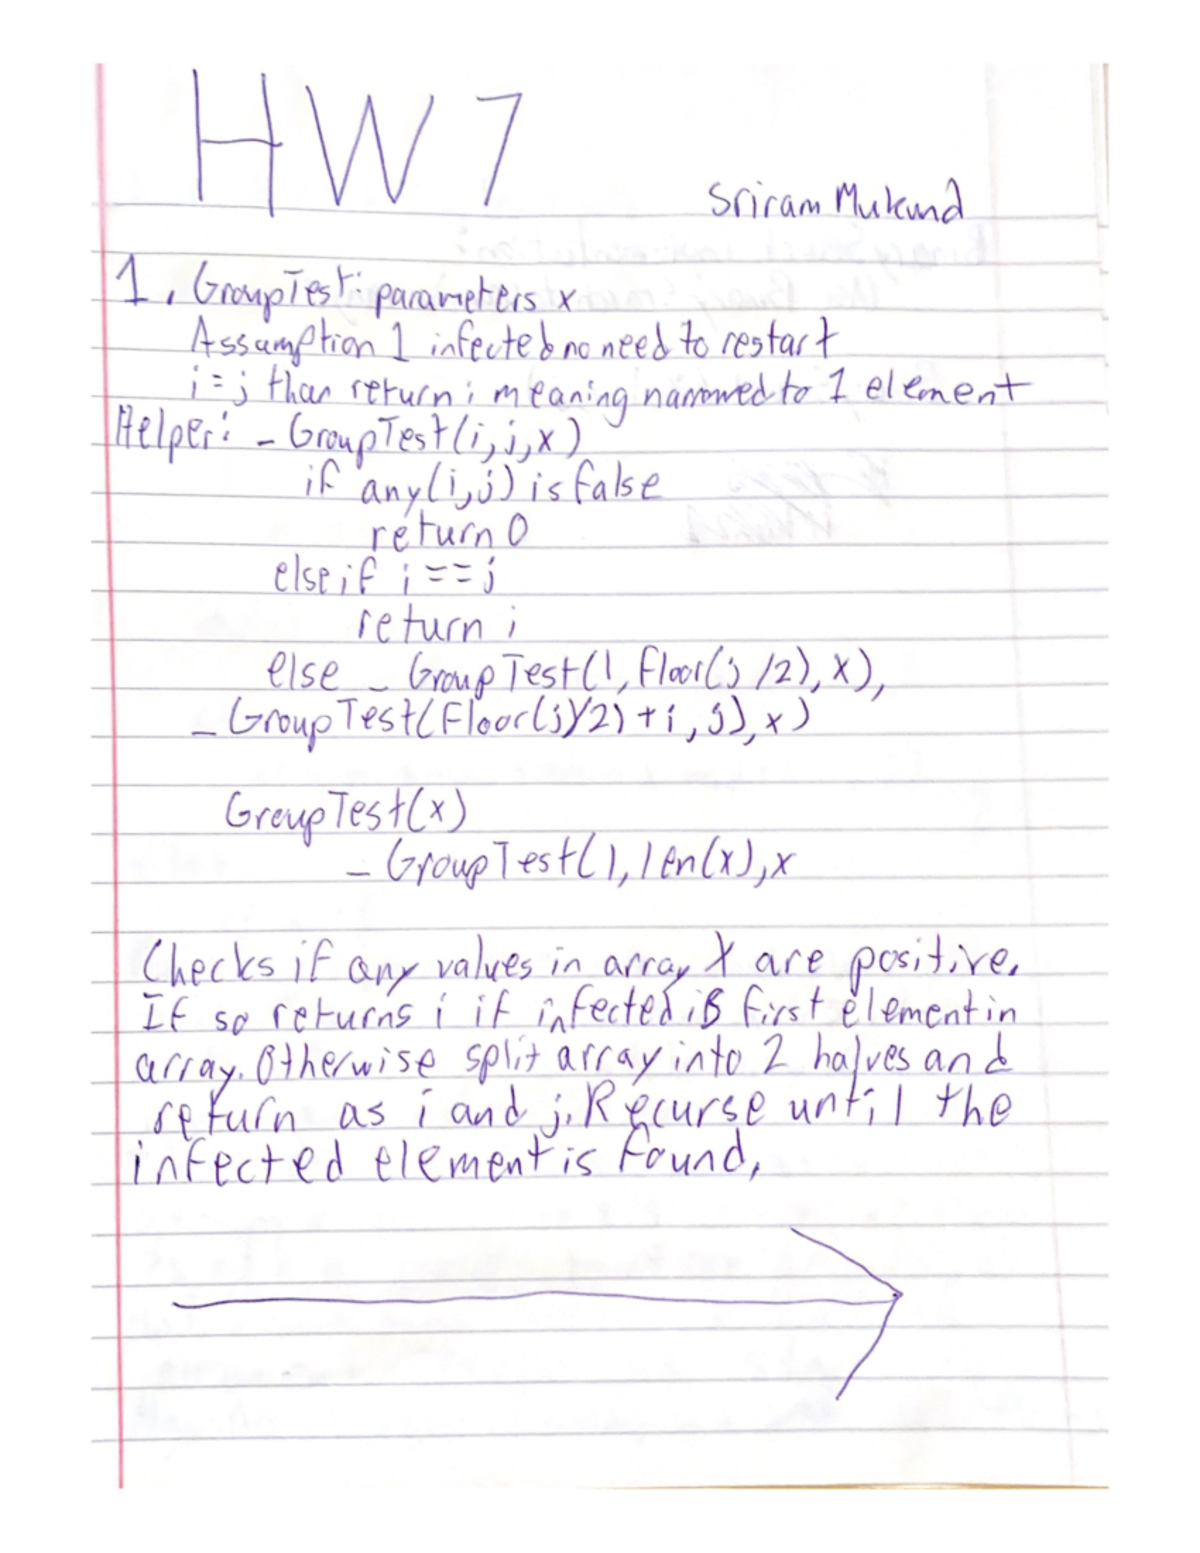 HW 7
Sriram Mukund
1. GroupTest: parameters x
Assumption 1 infected no need to restart
i=j than return i meaning narrowed to 1 element
Helper: _GroupTest(i,j,x)
if any(i,j) is false
return 0
else if i==j
return i
else _GroupTest(1, Floor(j/2), x),
_GroupTest(Floor(j)/2)+i, j), x)
GroupTest(x)
_GroupTest(1, len(x), x
Checks if any values in array X are positive.
If so returns i if infected is first element in
array. Otherwise split array into 2 halves and
return as i and j. Recurse until the
infected element is found.